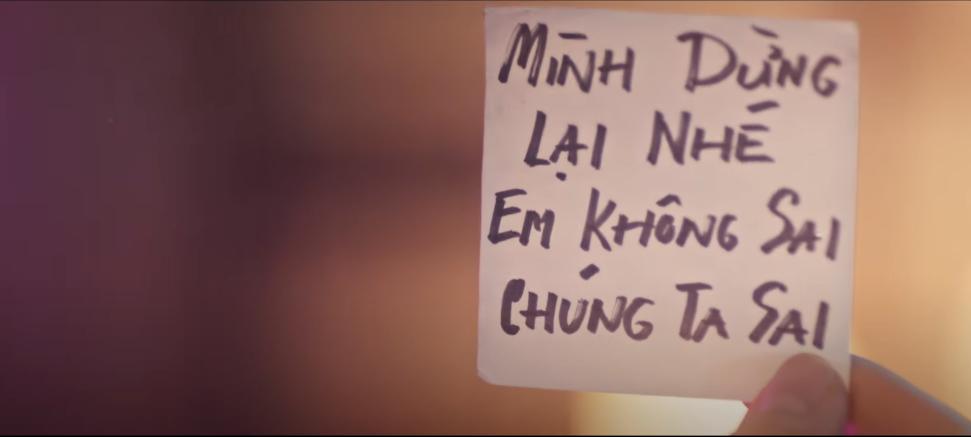 MÌNH DỪNG
LẠI NHÉ
EM KHÔNG SAI
CHÚNG TA SAI